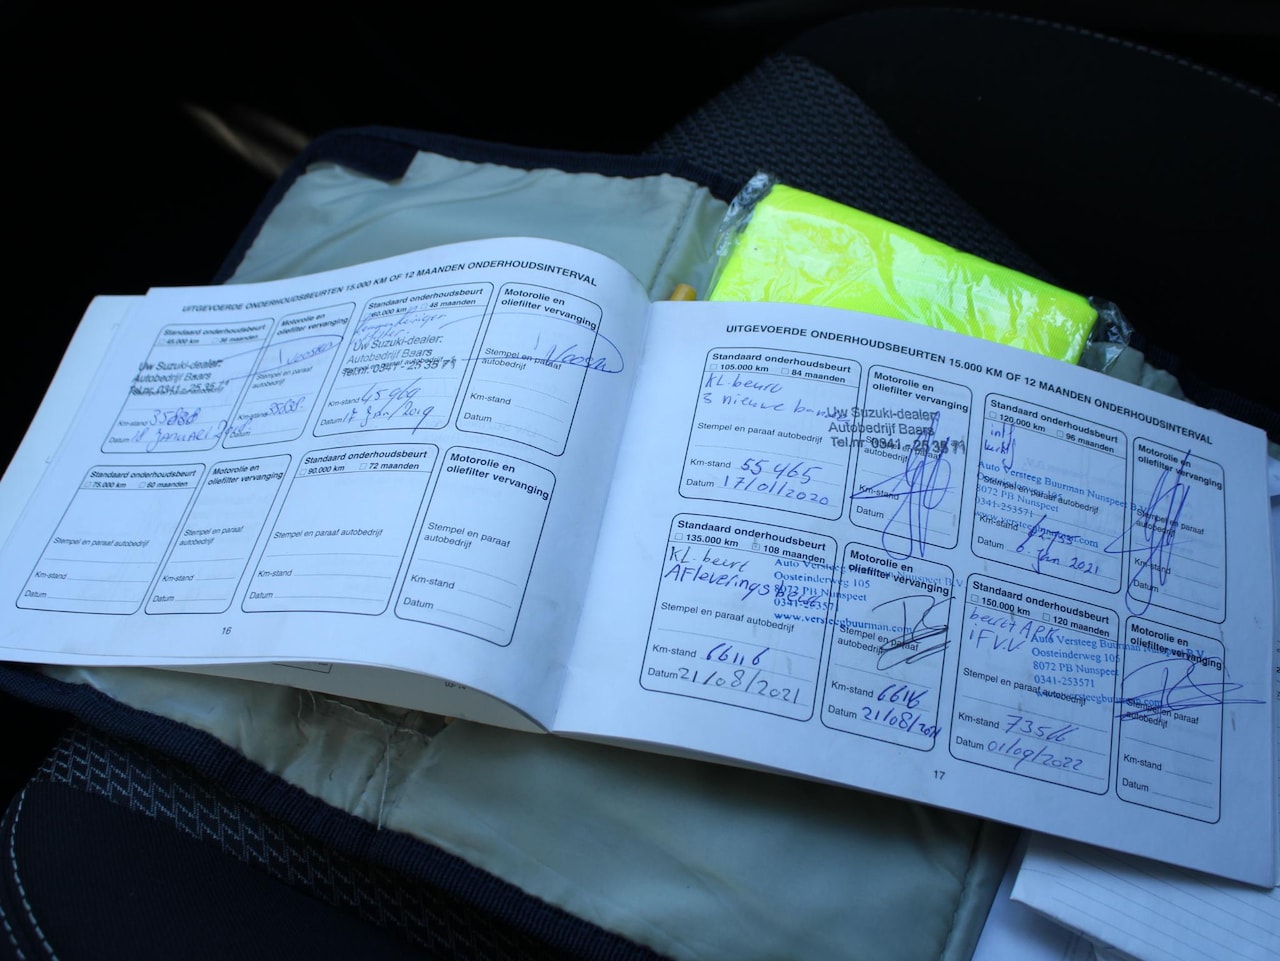 UITGEVOERDE ONDERHOUDSBEURTEN 15.000 KM OF 12 MAANDEN ONDERHOUDSINTERVAL
Standaard onderhoudsbeurt
45.000 km 36 maanden
Uw Suzuki-dealer:
Autobedrijf Baars
Tel.nr. 0341 - 25 35 71
Km-stand 35888
Datum 18 JANUARI
Motorolie en
oliefilter vervanging
Stempel en paraaf
autobedrijf
Km-stand
Datum
Standaard onderhoudsbeurt
60.000 km 48 maanden
Uw Suzuki-dealer:
Autobedrijf Baars
Tel.nr. 0341 - 25 35 71
Km-stand 45969
Datum 17 Jan/2019
Motorolie en
oliefilter vervanging
Stempel en paraaf
autobedrijf
Km-stand
Datum
Standaard onderhoudsbeurt
75.000 km 60 maanden
Stempel en paraaf autobedrijf
Km-stand
Datum
Motorolie en
oliefilter vervanging
Stempel en paraaf
autobedrijf
Km-stand
Datum
Standaard onderhoudsbeurt
90.000 km 72 maanden
Stempel en paraaf autobedrijf
Km-stand
Datum
Motorolie en
oliefilter vervanging
Stempel en paraaf
autobedrijf
Km-stand
Datum
16
UITGEVOERDE ONDERHOUDSBEURTEN 15.000 KM OF 12 MAANDEN ONDERHOUDSINTERVAL
Standaard onderhoudsbeurt
105.000 km 84 maanden
KL-beurt
3 nieuwe
Uw Suzuki-dealer:
Autobedrijf Baars
Tel.nr. 0341 - 25 35 71
Stempel en paraaf autobedrijf
Km-stand 55465
Datum 17/01/2020
Motorolie en
oliefilter vervanging
Km-stand
Datum
Standaard onderhoudsbeurt
120.000 km 96 maanden
Auto Versteeg Buurman Nunspeet B.V.
Oosteinderweg 105
8072 PB Nunspeet
0341-253571
www.versteegbuurman.com
Stempel en paraaf autobedrijf
Km-stand
Datum 6 Jan 2021
Motorolie en
oliefilter vervanging
Stempel en paraaf
autobedrijf
Km-stand
Datum
Standaard onderhoudsbeurt
135.000 km 108 maanden
KL-beurt
Afleverings beurt
Auto Versteeg Buurman Nunspeet B.V.
Oosteinderweg 105
8072 PB Nunspeet
0341-253571
www.versteegbuurman.com
Stempel en paraaf autobedrijf
Km-stand 66116
Datum 21/08/2021
Motorolie en
oliefilter vervanging
Stempel en paraaf
autobedrijf
Km-stand 66116
Datum 21/08/2021
Standaard onderhoudsbeurt
150.000 km 120 maanden
beurt APK
Auto Versteeg Buurman Nunspeet B.V.
Oosteinderweg 105
8072 PB Nunspeet
0341-253571
www.versteegbuurman.com
Stempel en paraaf autobedrijf
Km-stand 73566
Datum 01/09/2022
Motorolie en
oliefilter vervanging
Stempel en paraaf
autobedrijf
Km-stand
Datum
17